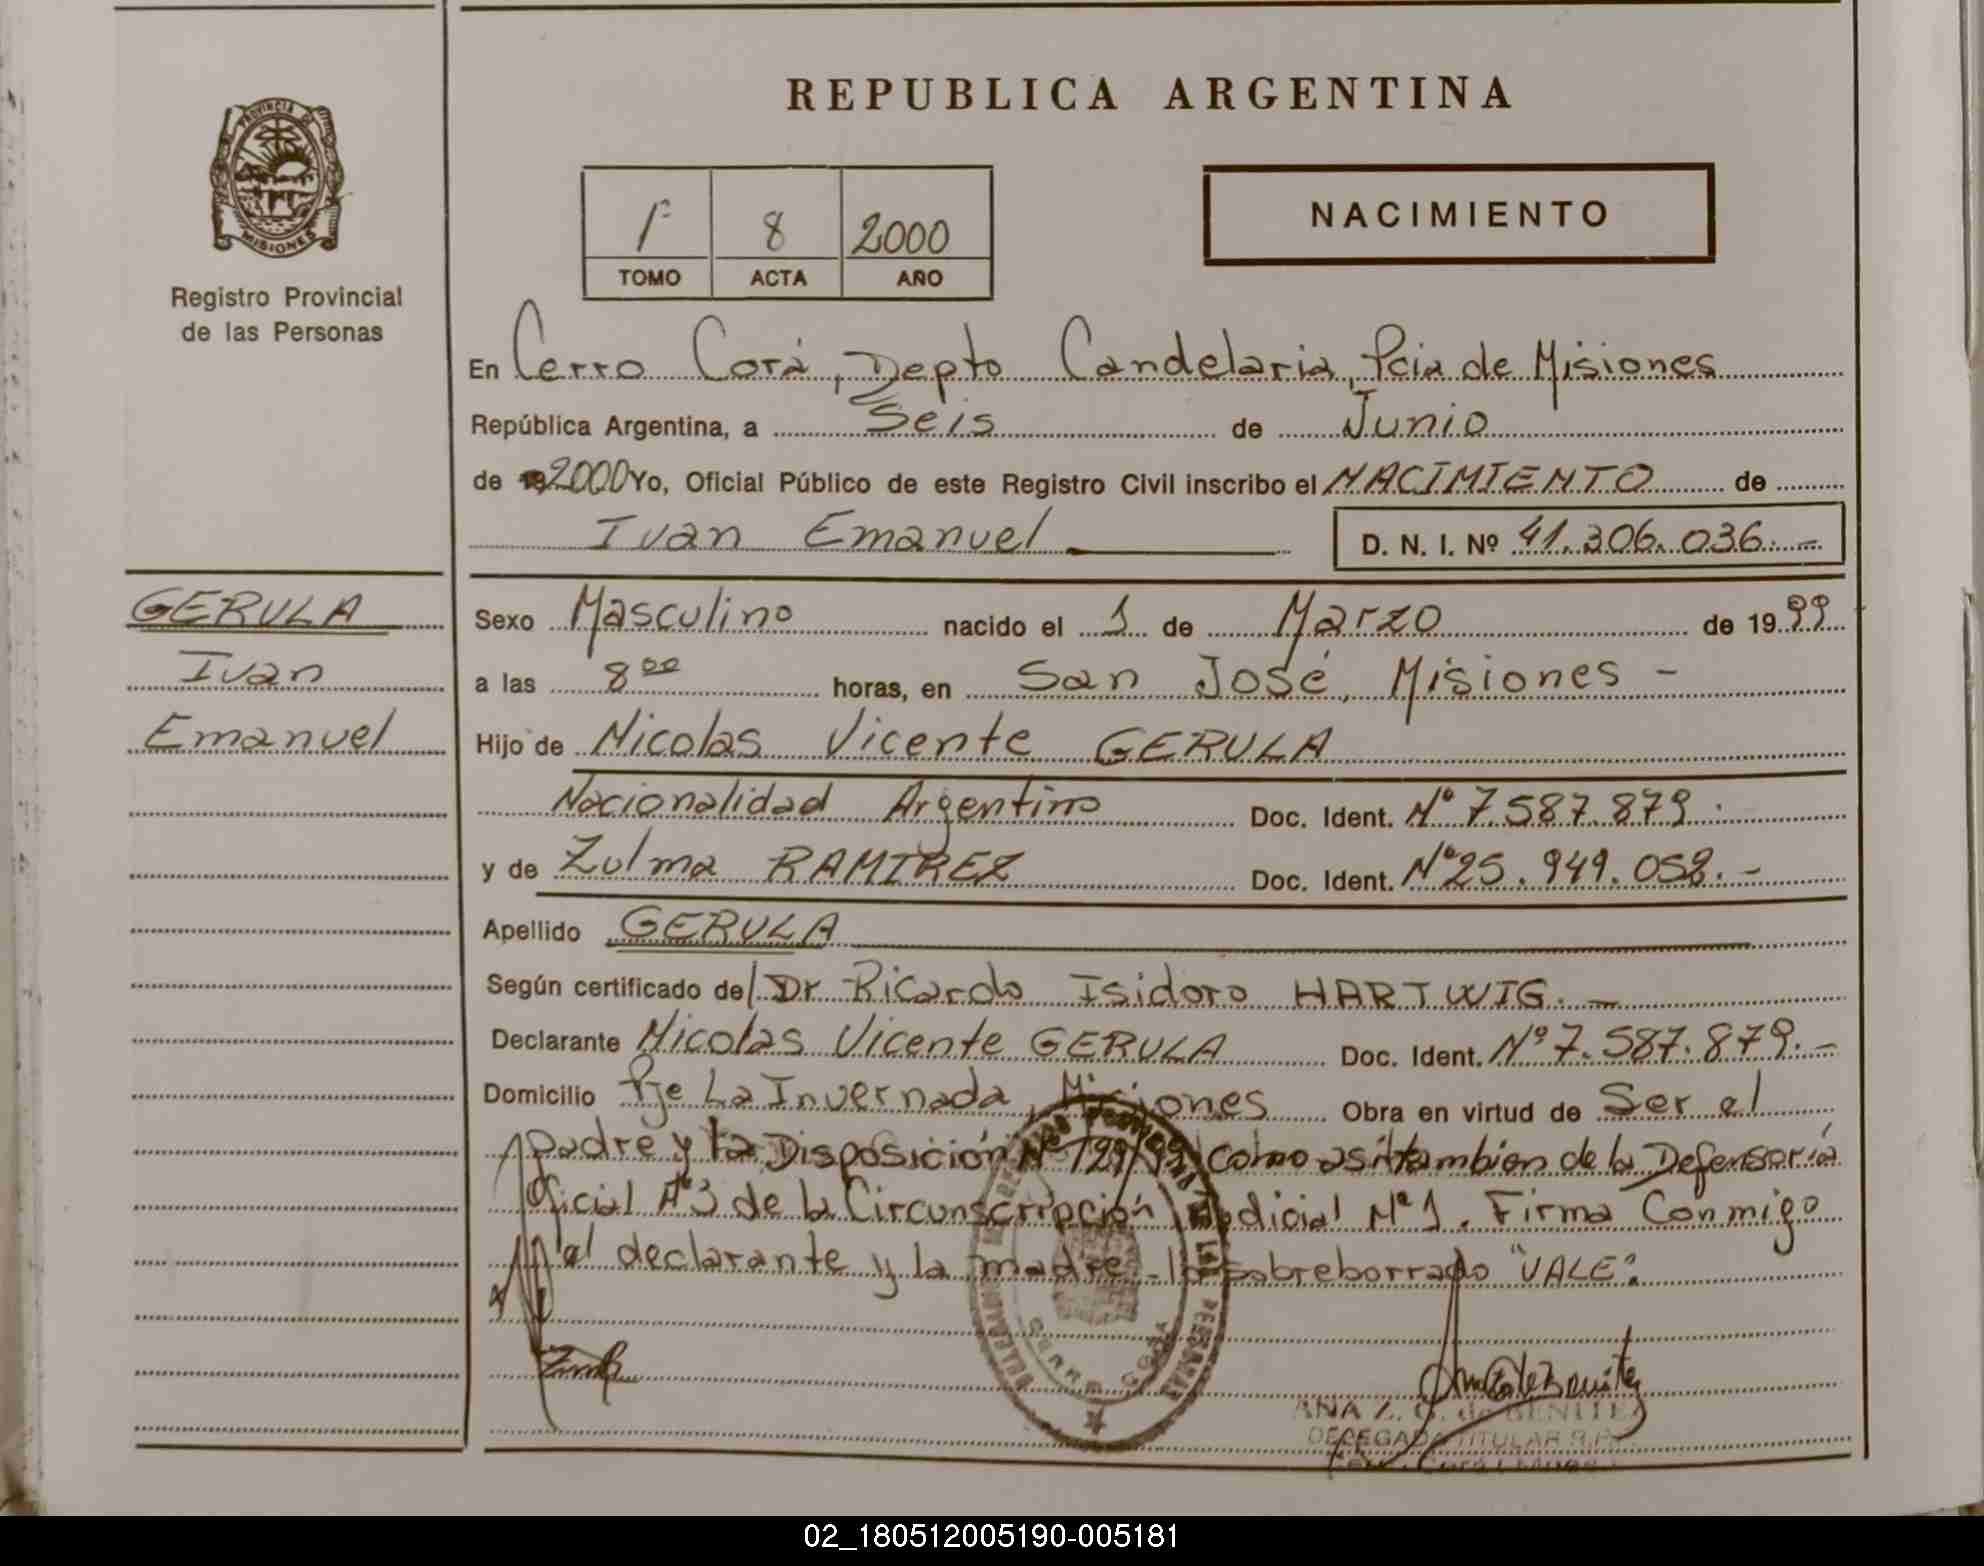 REPUBLICA ARGENTINA
PROVINCIA DE
MISIONES
Registro Provincial
de las Personas
1º 8 2000
TOMO ACTA AÑO
NACIMIENTO
En Cerro Corá, Depto Candelaria, Pcia de Misiones
República Argentina, a Seis de Junio
de 2000 Yo, Oficial Público de este Registro Civil inscribo el NACIMIENTO de
Ivan Emanuel D. N. I. Nº 41.306.036.-
GERULA
Ivan
Emanuel
Sexo Masculino nacido el 1 de Marzo de 1999
a las 8 00 horas, en San José, Misiones -
Hijo de Nicolas Vicente GERULA
Nacionalidad Argentino Doc. Ident. Nº 7.587.879.
y de Zulma RAMIREZ Doc. Ident. Nº 25.949.052.-
Apellido GERULA
Según certificado del Dr Ricardo Isidoro HARTWIG.-
Declarante Nicolas Vicente GERULA Doc. Ident. Nº 7.587.879.-
Domicilio Pje La Invernada, Misiones Obra en virtud de Ser el
padre y la Disposición Nº 129/99 como asi tambien de la Defensoría
Oficial Nº 3 de la Circunscripción Judicial Nº 1. Firma Conmigo
el declarante y la madre. lo sobreborrado "VALE".
PERSONAS
CERRO CORA
ANA Z. G. de BENITEZ
DELEGADA TITULAR R.P.
02_180512005190-005181